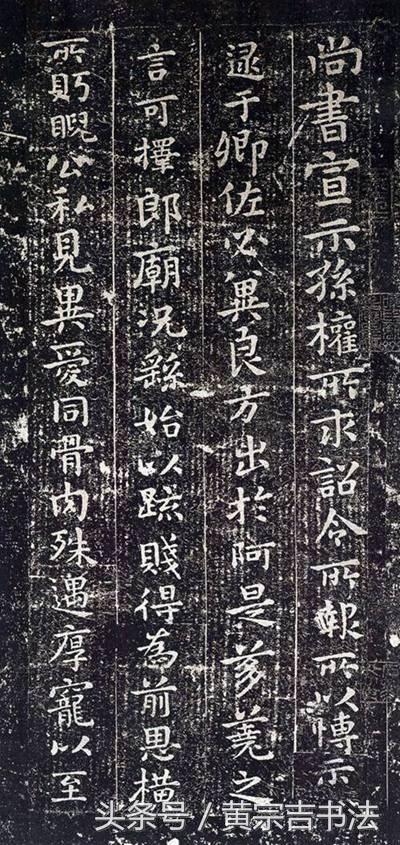 尚書宣示孫權所求詔令所報所以博示
逮于卿佐必冀良方出於阿是芻蕘之
言可擇郎廟況繇始以疏賤得為前恩橫
所眄睨公私見異愛同骨肉殊遇厚寵以至
头条号 / 黄宗吉书法